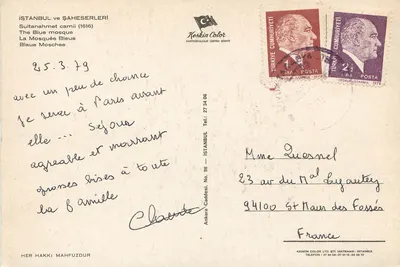 İSTANBUL ve ŞAHESERLERİ
Sultanahmet camii (1616)
The Blue mosque
La Mosquée Bleue
Blaue Moschee
Keskin Color
25.3.79
avec un peu de chance
je serai à Paris avant
elle ... Séjour
agreable et marrant
grosses bises à toute
la famille
HER HAKKI MAHFUZDUR
Ankara Caddesi, No. 98 - İSTANBUL Tel.: 27 34 06
TÜRKİYE CUMHURİYETİ
LİRA POSTA
TÜRKİYE CUMHURİYETİ
2½
LİRA POSTA
Mme Quesnel
23 av du Mal Lyautey
94100 St Maur des Fossés
France